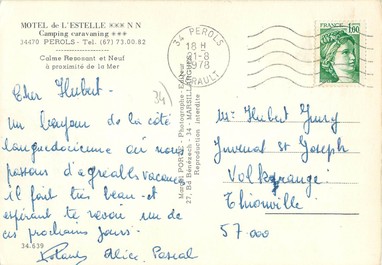 MOTEL de L'ESTELLE *** N N
Camping caravaning ***
34470 PEROLS - Tel. (67) 73.00.82
Calme Reposant et Neuf
à proximité de la Mer
34 PEROLS
18 H
21-8
1978
HERAULT
FRANCE
1,60
34
Cher Hubert.
un bonjour de la côte
languedocienne où nous
passons d'agréables vacances
il fait très beau - et
espérant te revoir un de
ces prochains jours.
Alice Pascal
34.639
Photographe - Editeur
27, Bd Bénézech - 34 - MARSILLARGUES
Reproduction interdite
Mr. Hubert
St Joseph
Volkrange
Thionville
57000